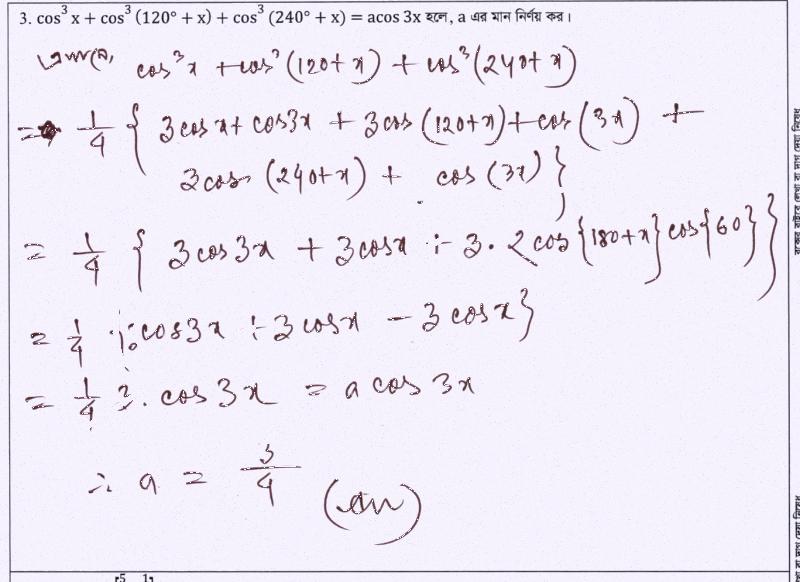 3. cos³ x + cos³ (120° + x) + cos³ (240° + x) = acos 3x হলে, a এর মান নির্ণয় কর।
cos³x + cos³(120+x) + cos³(240+x)
= 1/4 { 3cos x + cos3x + 3cos (120+x) + cos (3x) +
3cos (240+x) + cos (3x) }
= 1/4 { 3 cos 3x + 3 cosx + 3. 2 cos {180+x} cos{60} }
= 1/4 {3cos3x + 3 cosx - 3 cosx}
= 1/4 3. cos 3x = a cos 3x
∴ a = 3/4 (an)